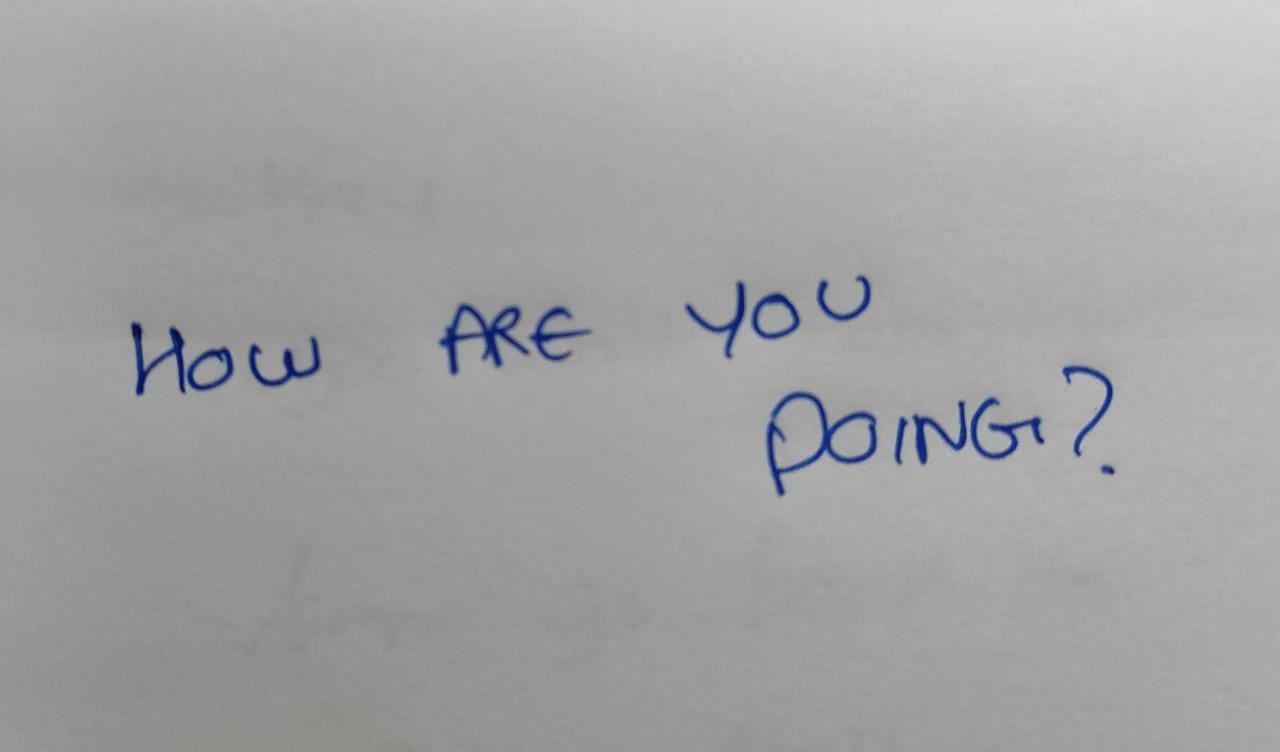 HOW ARE YOU
DOING?